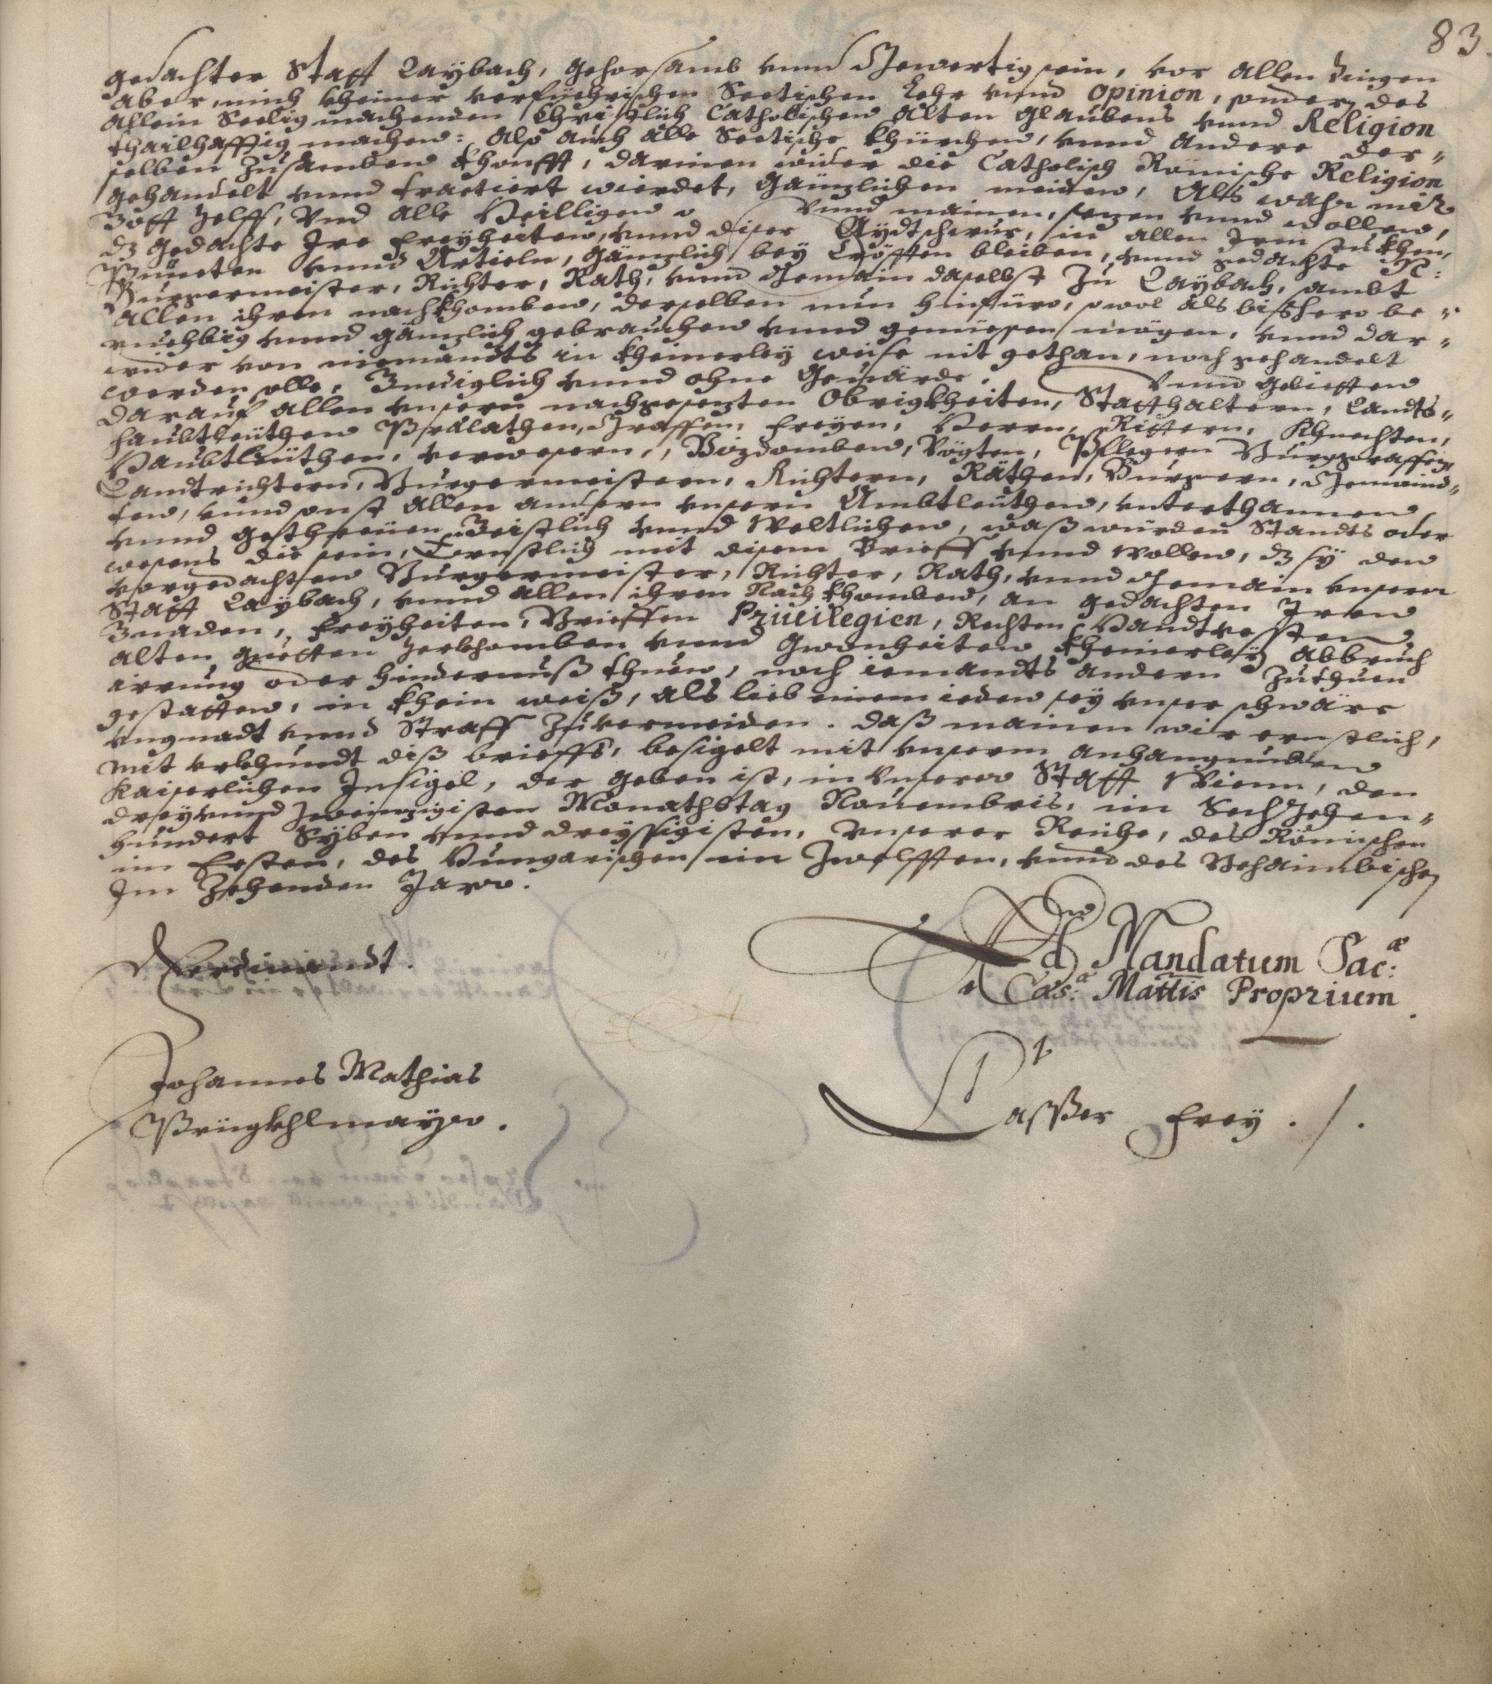 83.
gedachter Statt Laybach, gehorsamb vnnd Gewertig sein, vor allen dingen
aber, mich kheiner verfüehrischen Sectischen Lehr vnnd opinion, sonder des
allein Seelig machenden Christlich Catholischen alten Glaubens vnnd Religion
thailhafftig machen: also auch alle Sectische khürchen, vnnd andere der-
selben Zusamben khonfft, darinen wider die Catholisch Römische Religion
gehandelt vnnd tractiert wierdet, gänzlichen meiden, Alls wahr mir
Gott helff, Vnd alle Heilligen. Vnnd mainen, sezen vnnd wollen,
dz gedachte Ire freyheiten, vnnd diser Aydtschwur, in allen Iren stukhen,
Puncten vnnd Articln, gänzlich bey Crefften bleiben, vnnd gedachte N:
Burgermeister, Richter, Rath, vnnd Gemain daselbst Zu Laybach, sambt
allen ihren nachkhomben, derselben nun hinfüro, sowol als bisshero be-
ruehbig vnnd gänzlich gebrauchen vnnd geniessen mögen, vnnd dar-
wider von niemandts in kheinerley weise nit gethan, noch gehandelt
werden solle, Gnediglich vnnd ohne Geuärde. Vnnd gebietten
darauf allen vnsern nachgesezten Obrigkheiten, Statthaltern, Landts-
haubtleüthen Prælathen, Graffen, freyen, Herrn, Rittern, Khnechten,
Haubtleüthen, verwesern, Vizdomben, Vögten, Pflegern Burggraffen,
Landtrichtern, Burgermeistern, Richtern, Räthen, Burgern, Gemaind-
ten, vnnd sonst allen andern vnsern Ambtleuthen, vnterthannen
vnnd gethreüen, Geistlich vnnd Weltlichen, wass würden Standts oder
wesens die sein, Ernstlich mit disem Brieff vnnd wollen, dz sÿ den
vorgedachten Burgermeister, Richter, Rath, vnnd Gemain vnserer
Statt Laybach, vnnd allen ihren Nachkhomben, an gedachten Iren
Gnaden, freyheiten, Brieffen Priuilegien, Rechten, Handtvesten
alten guetten herkhomben vnnd Gwonheiten kheinerleÿ Abbruch
irrung oder hindernuß thuen, noch iemandts andern Zuthuen
gestatten, in khein weiß, als lieb einem ieden seÿ vnser schwäre
vngnadt vnnd Straff Zuuermeiden. daß mainen wir ernstlich,
mit vrkhundt diß brieffs, besigelt mit vnserm anhangunden
kaiserlichen Insigel, der geben ist, in vnserer Statt Wienn, den
dreyvnndzweinzigisten Monathstag Nouembris, im Sechzehen-
hundert Syben vnnd dreyssigisten, vnserer Reiche, des Römischen
im Ersten, des Hungarischen im Zwelfften, vnnd des Behaimbischen
Im Zehenden Jare.
Ferdinandt.
Ad Mandatum Sac:æ
Cæs:æ Mattis Proprium.
Johannes Mathias
Prügkhlmayer.
Casper frey ./.